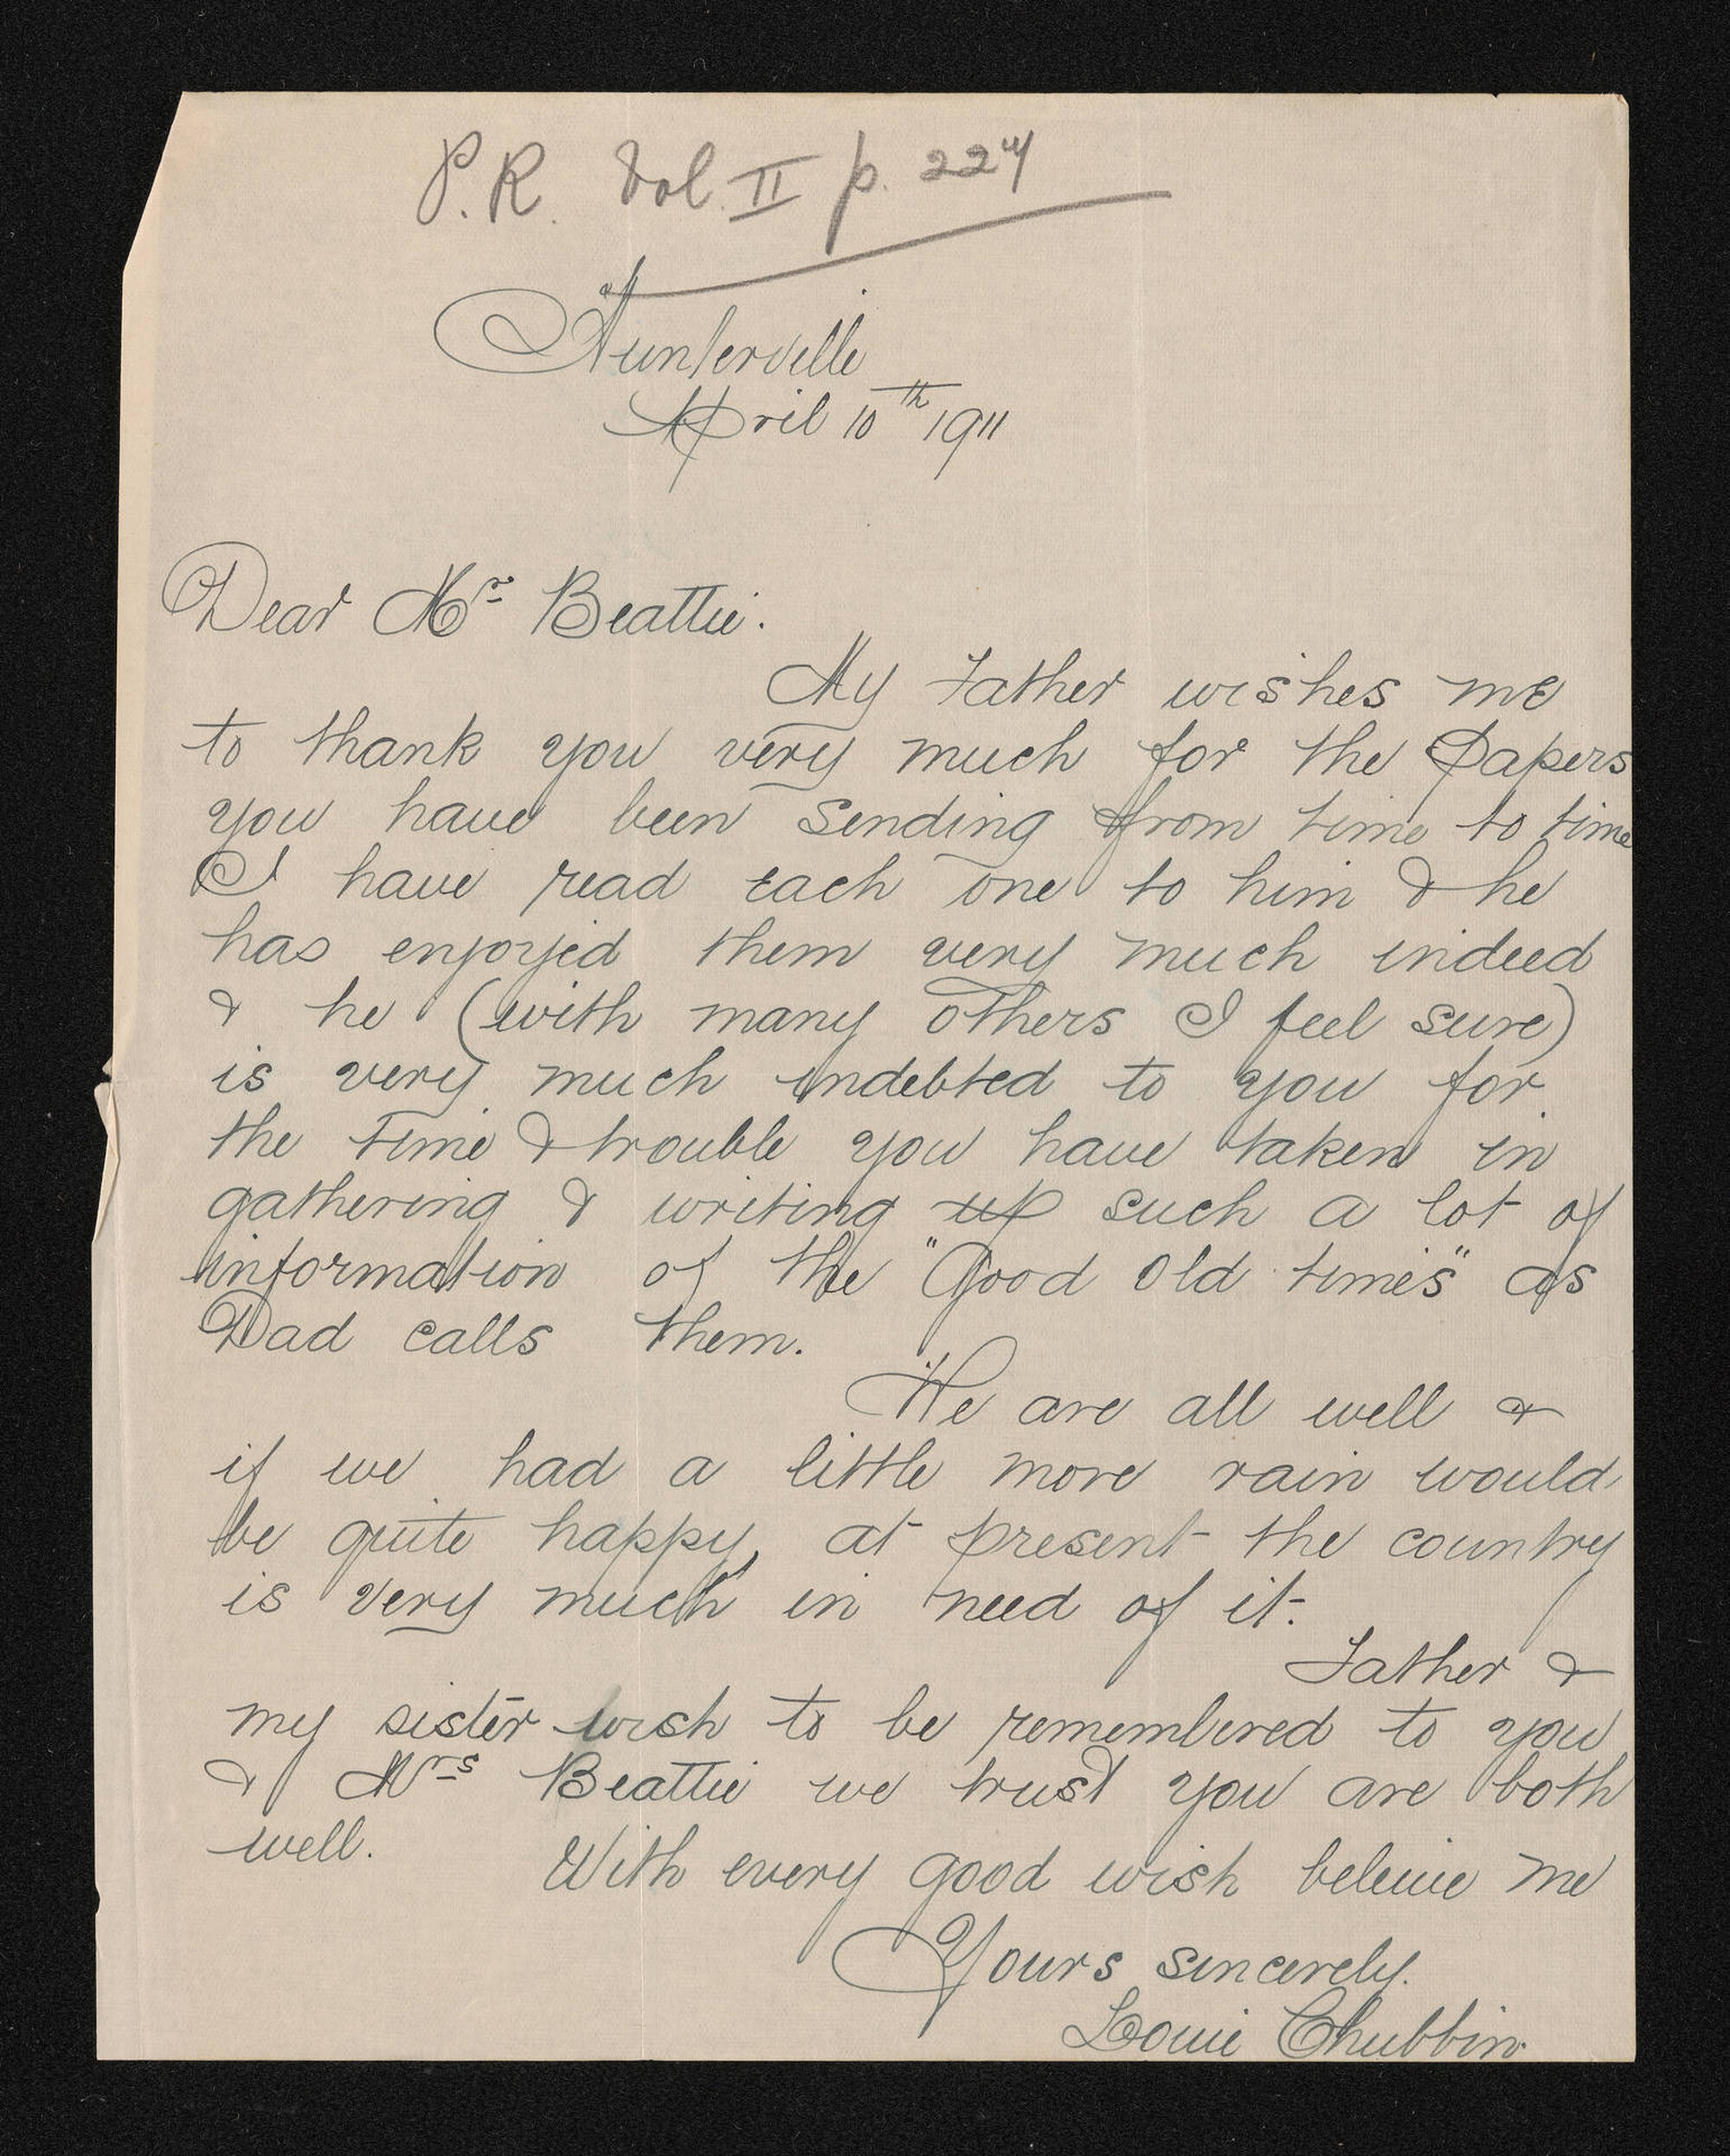 P.R. Vol. II p. 224
Hunterville
April 10th 1911
Dear Mr Beattie.
My Father wishes me
to thank you very much for the Papers
you have been sending from time to time
I have read each one to him & he
has enjoyed them very much indeed
& he (with many others I feel sure)
is very much indebted to you for
the time & trouble you have taken in
gathering & writing up such a lot of
information of the "Good Old times" as
Dad calls them.
We are all well &
if we had a little more rain would
be quite happy, at present the country
is very much in need of it.
Father &
my sister wish to be remembered to you
& Mrs Beattie we trust you are both
well.
With every good wish beleive me
Yours sincerely.
Louie Chubbin